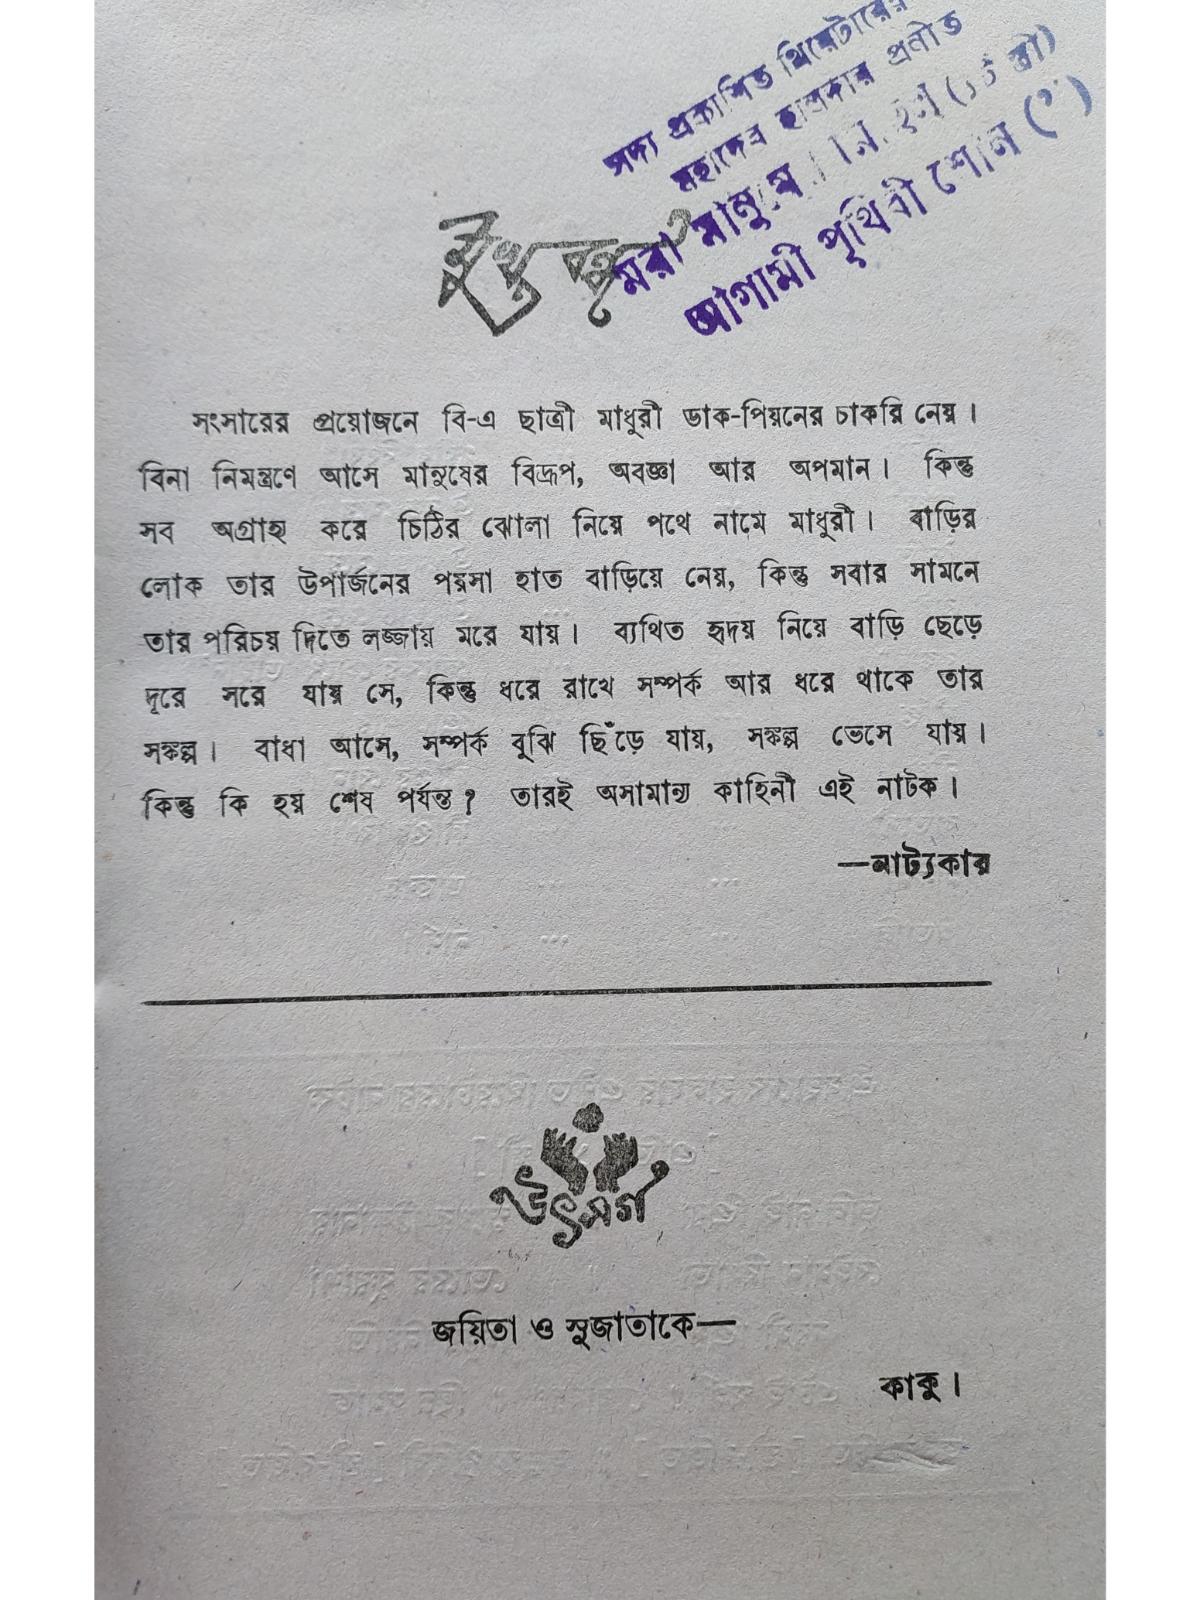 সদ্য প্রকাশিত থিয়েটারের
মহাদেব হালদার প্রণীত
মরা মানুষ
আগামী পৃথিবী শোন
সংসারের প্রয়োজনে বি-এ ছাত্রী মাধুরী ডাক-পিয়নের চাকরি নেয়।
বিনা নিমন্ত্রণে আসে মানুষের বিদ্রূপ, অবজ্ঞা আর অপমান। কিন্তু
সব অগ্রাহ্য করে চিঠির ঝোলা নিয়ে পথে নামে মাধুরী। বাড়ির
লোক তার উপার্জনের পয়সা হাত বাড়িয়ে নেয়, কিন্তু সবার সামনে
তার পরিচয় দিতে লজ্জায় মরে যায়। ব্যথিত হৃদয় নিয়ে বাড়ি ছেড়ে
দূরে সরে যায় সে, কিন্তু ধরে রাখে সম্পর্ক আর ধরে থাকে তার
সঙ্কল্প। বাধা আসে, সম্পর্ক বুঝি ছিঁড়ে যায়, সঙ্কল্প ভেসে যায়।
কিন্তু কি হয় শেষ পর্যন্ত? তারই অসামান্য কাহিনী এই নাটক।
—নাট্যকার
উৎসর্গ
জয়িতা ও সুজাতাকে—
কাকু।